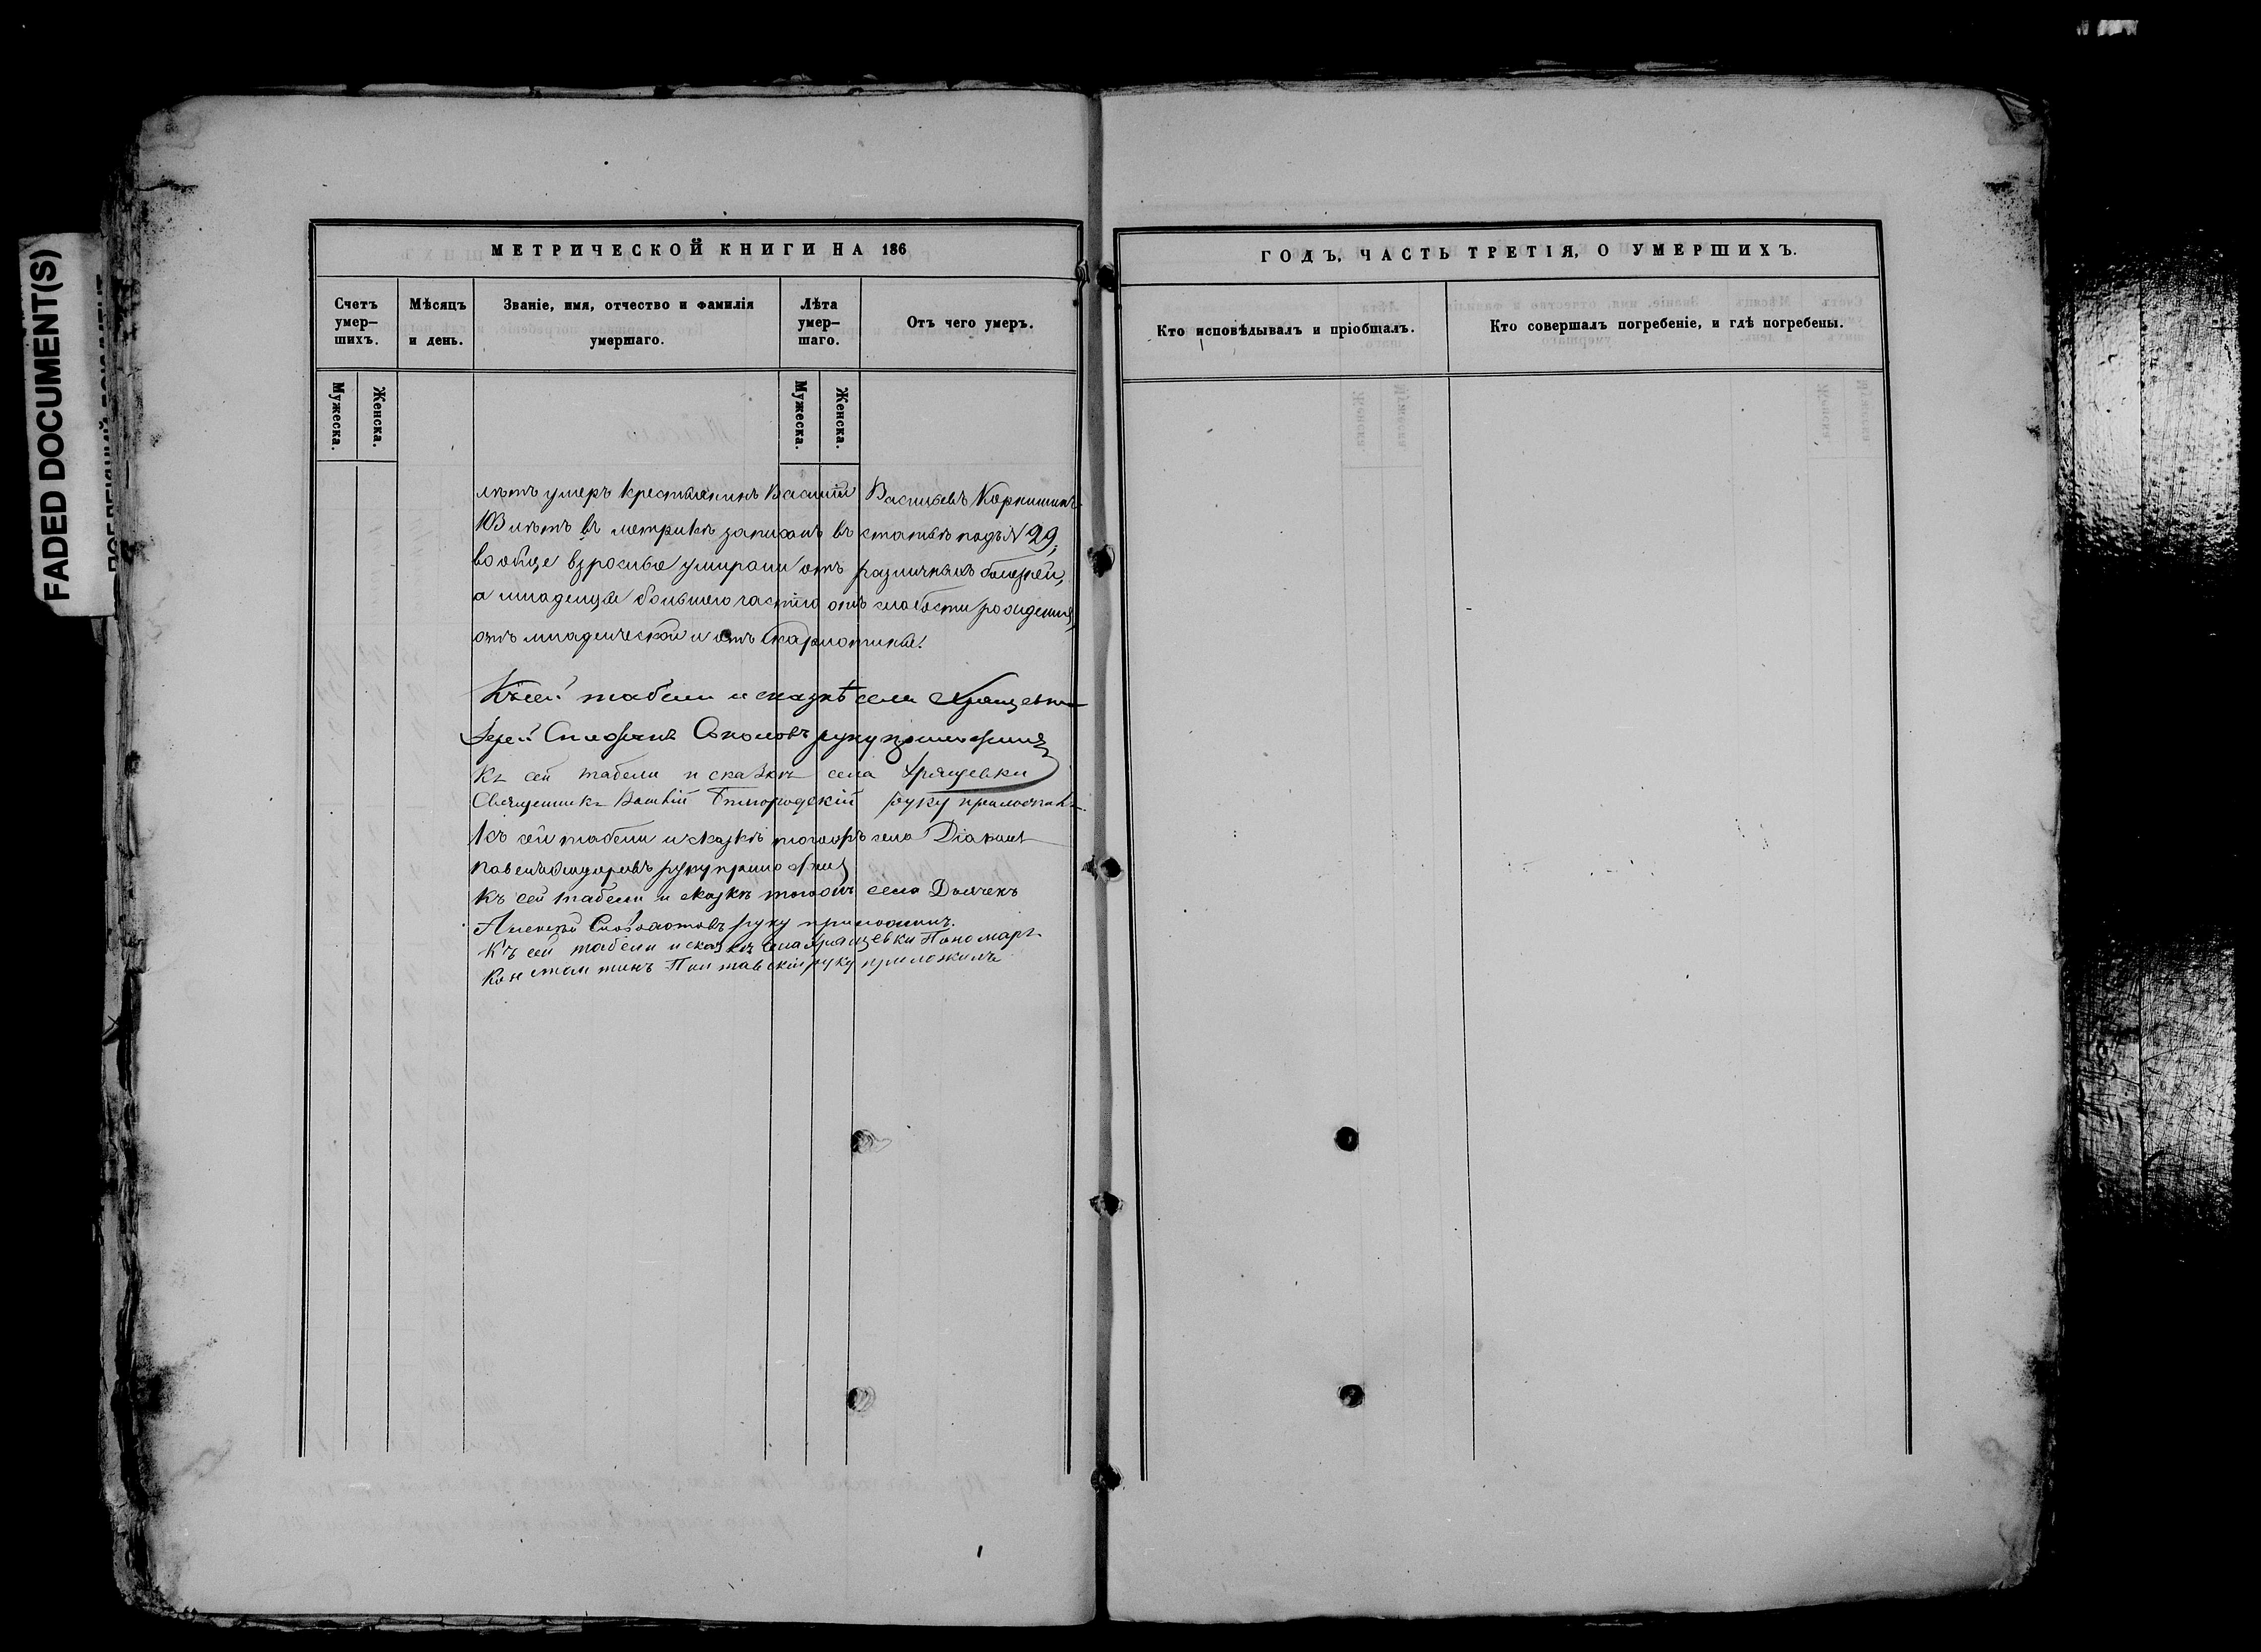 FADED DOCUMENT(S)
МЕТРИЧЕСКОЙ КНИГИ НА 186
Счетъ умер-шихъ.
Мѣсяцъ и день.
Званіе, имя, отчество и фамилія умершаго.
Лѣта умер-шаго.
Отъ чего умеръ.
Мужеска.
Женска.
Мужеска.
Женска.
лѣтъ умеръ крестьянинъ Василій Васильевъ
103 лѣтъ въ метрикѣ записанъ въ статьѣ подъ N 29;
вообще взрослые умирали отъ различныхъ болезней,
а младенцы большею частію отъ слабости рожденія,
отъ младенческой и отъ скарлатины.
Къ сей табели и сказкѣ села Хрящевки
Іерей Соколовъ руку приложилъ
Къ сей табели и сказкѣ села Хрящевки
Священникъ руку приложилъ
Къ сей табели и сказкѣ тогожъ села Діаконъ
Павелъ руку приложилъ
Къ сей табели и сказкѣ тогожъ села Дьячекъ
Алексѣй руку приложилъ.
Къ сей табели и сказкѣ села Хрящевки Пономарь
Константинъ Полтавскій руку приложилъ
ГОДЪ, ЧАСТЬ ТРЕТІЯ, О УМЕРШИХЪ.
Кто исповѣдывалъ и пріобщалъ.
Кто совершалъ погребеніе, и гдѣ погребены.